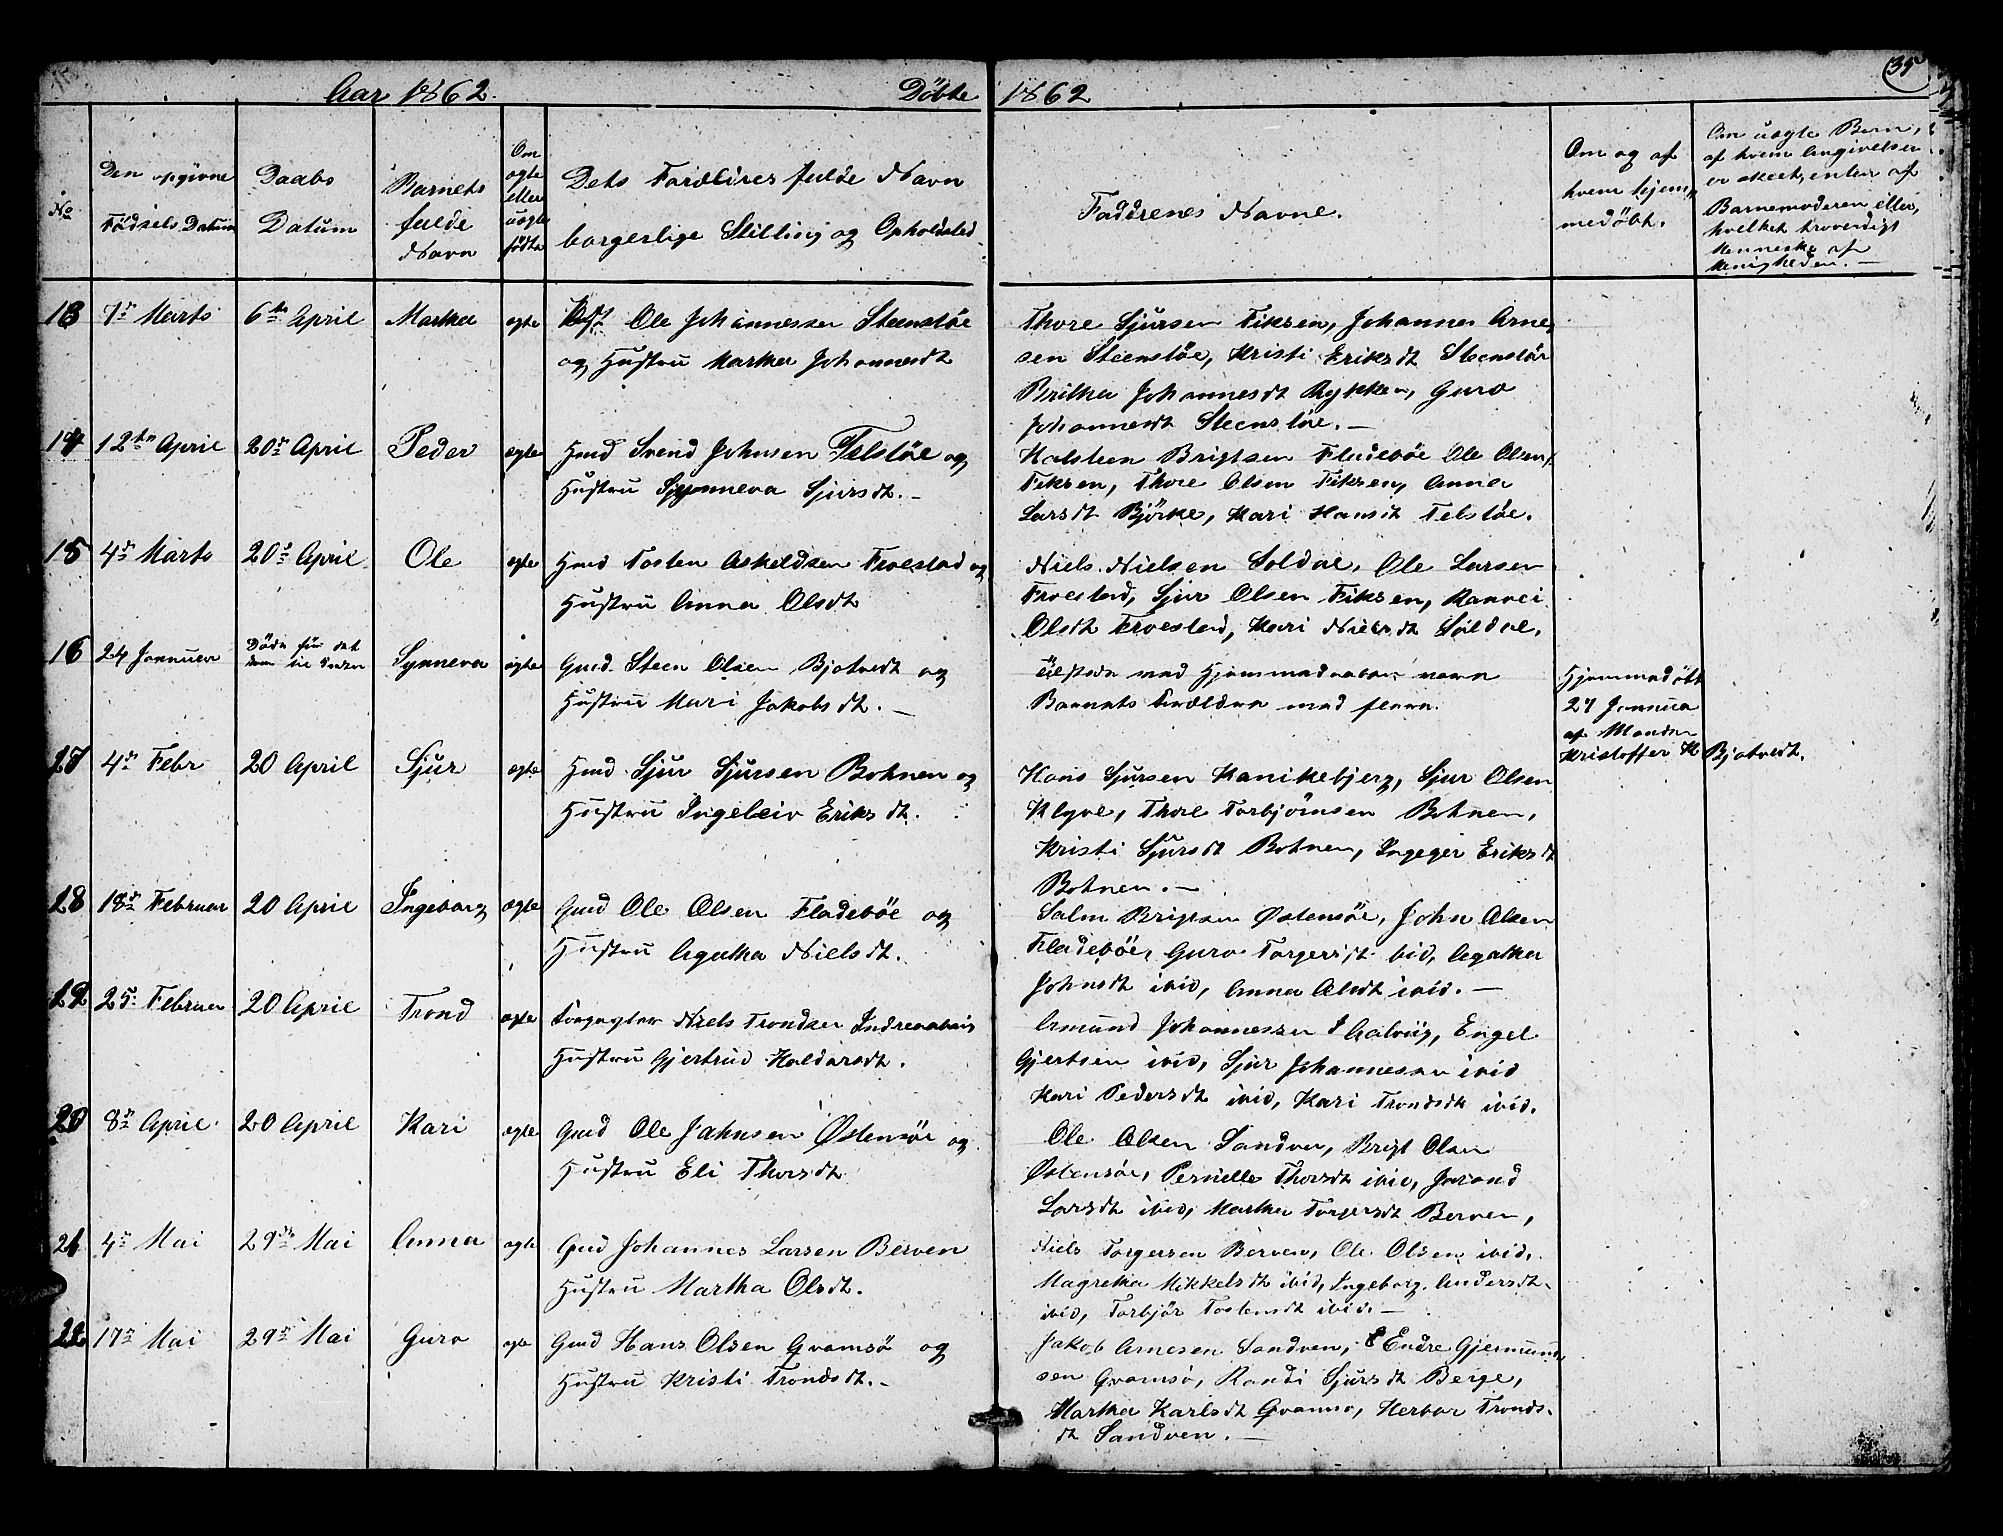 35
Aar 1862. Döbte 1862
No
Den opgivne
Födsels Datum
Daabs
Datum
Barnets
fulde
Navn
Om
ægte
eller
uægte
födte
Dets Forældres fulde Navn
borgerlige Stilling og Opholdsted
Faddrenes Navne.
Om og af
hvem hjem,
medöbt.
Om uægte Børn,
af hvem Angivelsen
er skeet, enten af
Barnemoderen eller,
hvilket troverdigt
Menneske af
Menigheden. —
13 7de Marts 6te April Martha ægte Ole Johannessen Steenstöe
og Hustru Martha Johannesdt
Thore Sjursen Fiksen, Johannes Arne,
sen Steenstöe, Kristi Eriksdt Steenstöe
Britha Johannesdt Rykken, Guro
Johannesdt Steenstöe. —
14 12te April 20de April Peder ægte Hmd Svend Johnsen Telstöe og
Hustru Synneva Sjursdt. —
Halsteen Brigtsen Fladeböe Ole Olsen,
Fiksen, Thore Olsen Fiksen, Anna
Larsdt Björke, Kari Hansdt Telstöe.
15 4de Marts 20de April Ole ægte Hmd Tosten Askeldsen Froestad og
Hustru Anna Olsdt
Niels Nielsen Soldal, Ole Larsen
Froestad, Sjur Olsen Fiksen, Rannei
Olsdt Froestad, Kari Nielsdt Soldal.
16 24 Januar Döde för det
kom til Synneva ægte Gmd. Steen Olsen Bjotvedt og
Hustru Mari Jakobsdt. —
Tilstede ved Hjemmedaaben vare
Barnets Forældre med flere.
Hjemmedöbt
27 Janua
af Manden
Kristoffer K Bjotvedt.
17 4de Febr 20 April Sjur ægte Hmd Sjur Sjursen Botnen og
Hustru Ingeleiv Eriksdt.
Hans Sjursen Kanikebjerg, Sjur Olsen
Klyve, Thore Torbjörnsen Botnen,
Kristi Sjursdt Botnen, Ingeger Eriksdt
Botnen. —
18 18de Februar 20 April Ingeborg ægte Gmd Ole Olsen Fladeböe og
Hustru Agatha Nielsdt.
Salm Brigtsen Østensöe, John Olsen
Fladeböe, Guro Torgersdt ibid, Agatha
Johnsdt ibid, Anna Olsdt ibid. —
19 25. Februar 20 April Trond ægte Niels Trondsen
Hustru Gjertrud Haldorsdt.
Amund Johannessen Aalvig, Engel
Gjertsen ibid, Sjur Johannessen ibid
Kari Pedersdt ibid, Kari Trondsdt ibid.
20 8de April 20 April Kari ægte Gmd Ole Johnsen Østensöe og
Hustru Eli Thorsdt
Ole Olsen Sandven, Brigt Olsen
Østensöe, Pernille Thorsdt ibid, Jorand
Larsdt ibid, Martha Torgersdt Berven,
21 4de Mai 29de Mai Anna ægte Gmd Johannes Larsen Berven
Hustru Martha Olsdt.
Niels Torgersen Berven, Ole Olsen ibid,
Magretha Mikkelsdt ibid, Ingeborg Andersdt
ibid, Torbjör Tostensdt ibid. —
22 17de Mai 29de Mai Guro ægte Gmd Hans Olsen Qvamsö og
Hustru Kristi Trondsdt. —
Jakob Arnesen Sandven, Endre Gjermund,
sen Qvamsö, Randi Sjursdt Berge,
Martha Karlsdt Qvamsö, Herbor Tronds-
dt Sandven. —